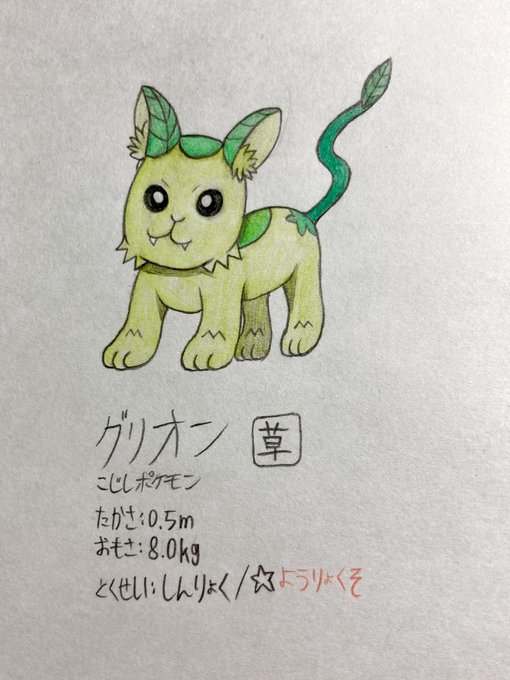 グリオン 草
こじしポケモン
たかさ:0.5m
おもさ:8.0kg
とくせい:しんりょく/☆ようりょくそ